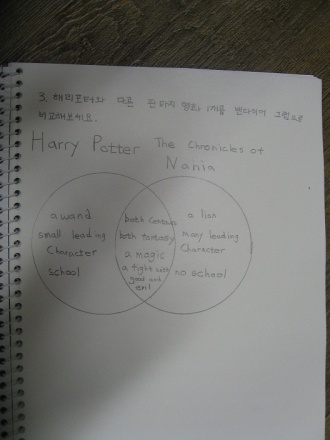 3. 해리포터와 다른 판타지 영화 1개를 벤다이어 그림으로
비교해보세요.
Harry Potter The Chronicles of
Nania
a wand
small leading
Character
school
both
both fantasy
a magic
a fight with
good and
evil
a lion
many leading
Character
no school